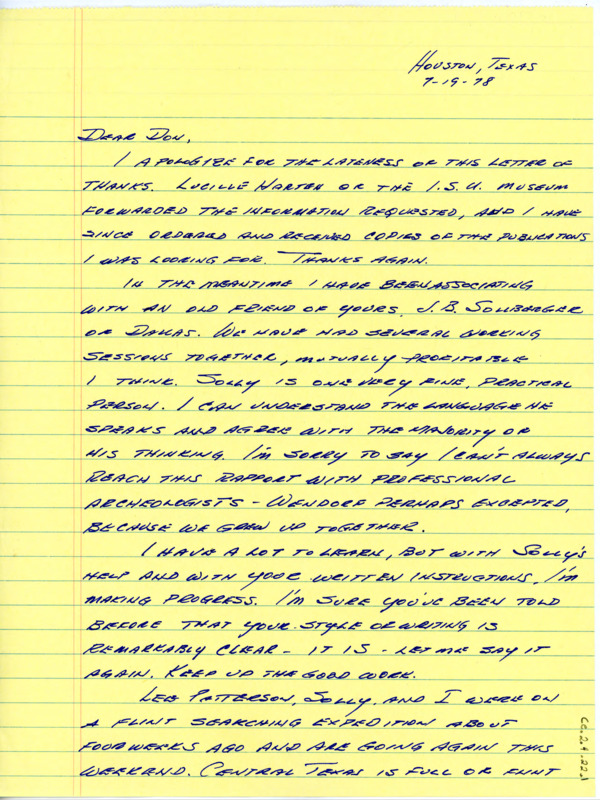 HOUSTON, TEXAS
7-19-78
DEAR DON,
I APOLOGIZE FOR THE LATENESS OF THIS LETTER OF
THANKS. LUCILLE HARTEN OF THE I.S.U. MUSEUM
FORWARDED THE INFORMATION REQUESTED, AND I HAVE
SINCE ORDERED AND RECEIVED COPIES OF THE PUBLICATIONS
I WAS LOOKING FOR. THANKS AGAIN.
IN THE MEANTIME I HAVE BEEN ASSOCIATING
WITH AN OLD FRIEND OF YOURS, J.B. SOLLBERGER
OF DALLAS. WE HAVE HAD SEVERAL WORKING
SESSIONS TOGETHER, MUTUALLY PROFITABLE
I THINK. SOLLY IS ONE VERY FINE, PRACTICAL
PERSON. I CAN UNDERSTAND THE LANGUAGE HE
SPEAKS AND AGREE WITH THE MAJORITY OF
HIS THINKING. I'M SORRY TO SAY I CAN'T ALWAYS
REACH THIS RAPPORT WITH PROFESSIONAL
ARCHEOLOGISTS - WENDORF PERHAPS EXCEPTED,
BECAUSE WE GREW UP TOGETHER.
I HAVE A LOT TO LEARN, BUT WITH SOLLY'S
HELP AND WITH YOUR WRITTEN INSTRUCTIONS, I'M
MAKING PROGRESS. I'M SURE YOU'VE BEEN TOLD
BEFORE THAT YOUR STYLE OF WRITING IS
REMARKABLY CLEAR - IT IS - LET ME SAY IT
AGAIN. KEEP UP THE GOOD WORK.
LEE PATTERSON, SOLLY, AND I WERE ON
A FLINT SEARCHING EXPEDITION ABOUT
FOUR WEEKS AGO AND ARE GOING AGAIN THIS
WEEKEND. CENTRAL TEXAS IS FULL OF FLINT
CC.2.4.22.1